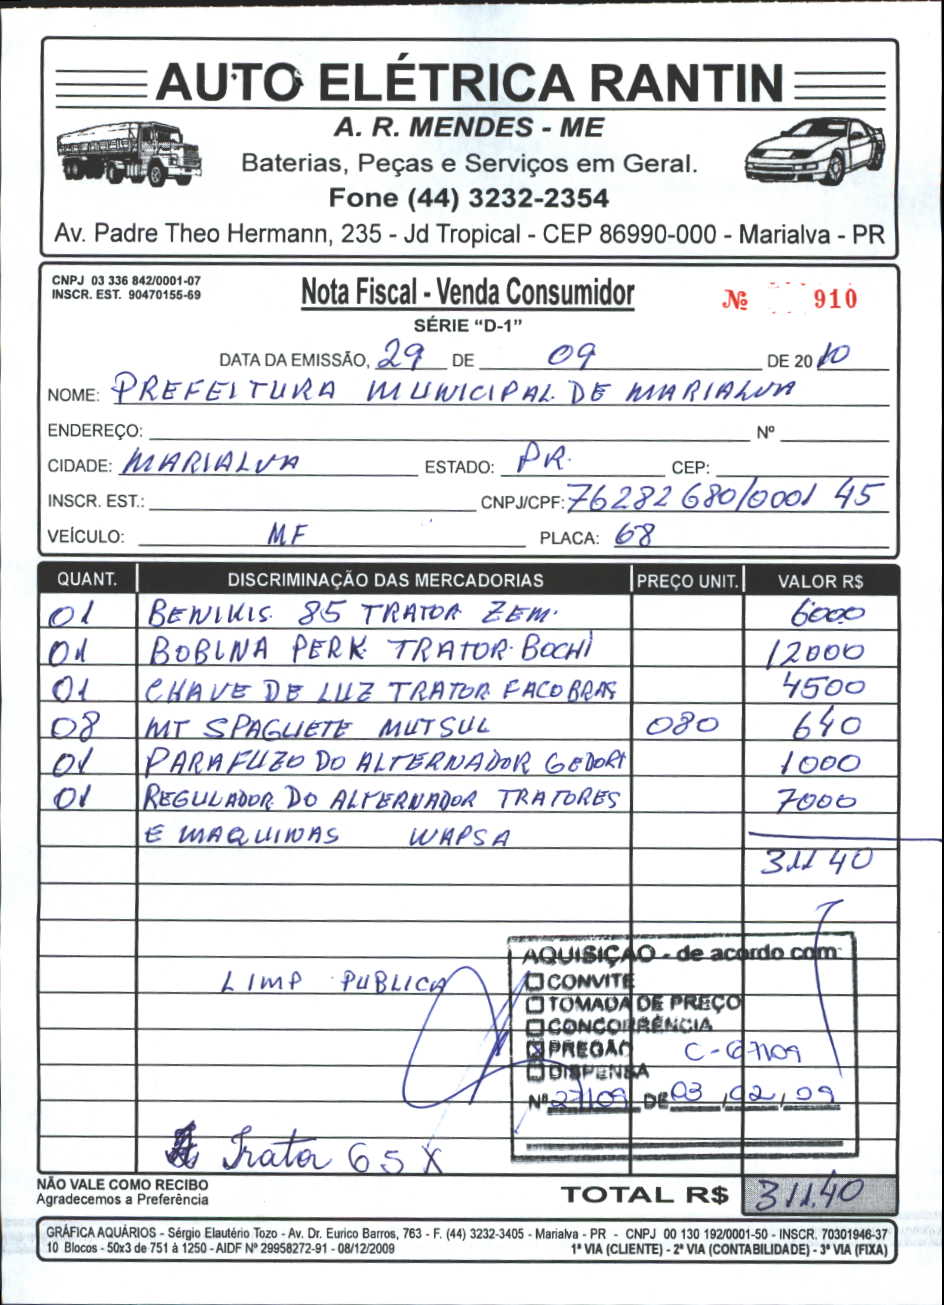 AUTO ELÉTRICA RANTIN
A. R. MENDES - ME
Baterias, Peças e Serviços em Geral.
Fone (44) 3232-2354
Av. Padre Theo Hermann, 235 - Jd Tropical - CEP 86990-000 - Marialva - PR
CNPJ 03 336 842/0001-07
INSCR. EST. 90470155-69
Nota Fiscal - Venda Consumidor
Nº 910
SÉRIE "D-1"
DATA DA EMISSÃO, 29 DE 09 DE 2010
NOME: PREFEITURA MUNICIPAL DE MARIALVA
ENDEREÇO: Nº
CIDADE: MARIALVA ESTADO: PR. CEP:
INSCR. EST.: CNPJ/CPF: 76282680/0001 45
VEÍCULO: MF PLACA: 68
QUANT. DISCRIMINAÇÃO DAS MERCADORIAS PREÇO UNIT. VALOR R$
01 85 TRATOR ZEM. 6000
01 BOBINA PERK. TRATOR BOCHI 12000
01 CHAVE DE LUZ TRATOR FACOBRAS 4500
08 MT SPAGUETE MUTSUL 080 640
01 PARAFUZO DO ALTERNADOR GEDORT 1000
01 REGULADOR DO ALTERNADOR TRATORES 7000
E MAQUINAS WAPSA
311 40
AQUISIÇÃO - de acordo com:
LIMP PUBLICA
CONVITE
TOMADA DE PREÇO
CONCORRÊNCIA
PREGÃO C-67109
DISPENSA
Nº 27109 DE 03, 02, 09
Trator 65 X
NÃO VALE COMO RECIBO
Agradecemos a Preferência
TOTAL R$ 311.40
GRÁFICA AQUÁRIOS - Sérgio Elautério Tozo - Av. Dr. Eurico Barros, 763 - F. (44) 3232-3405 - Marialva - PR - CNPJ 00 130 192/0001-50 - INSCR. 70301946-37
10 Blocos - 50x3 de 751 à 1250 - AIDF Nº 29958272-91 - 08/12/2009
1ª VIA (CLIENTE) - 2ª VIA (CONTABILIDADE) - 3ª VIA (FIXA)